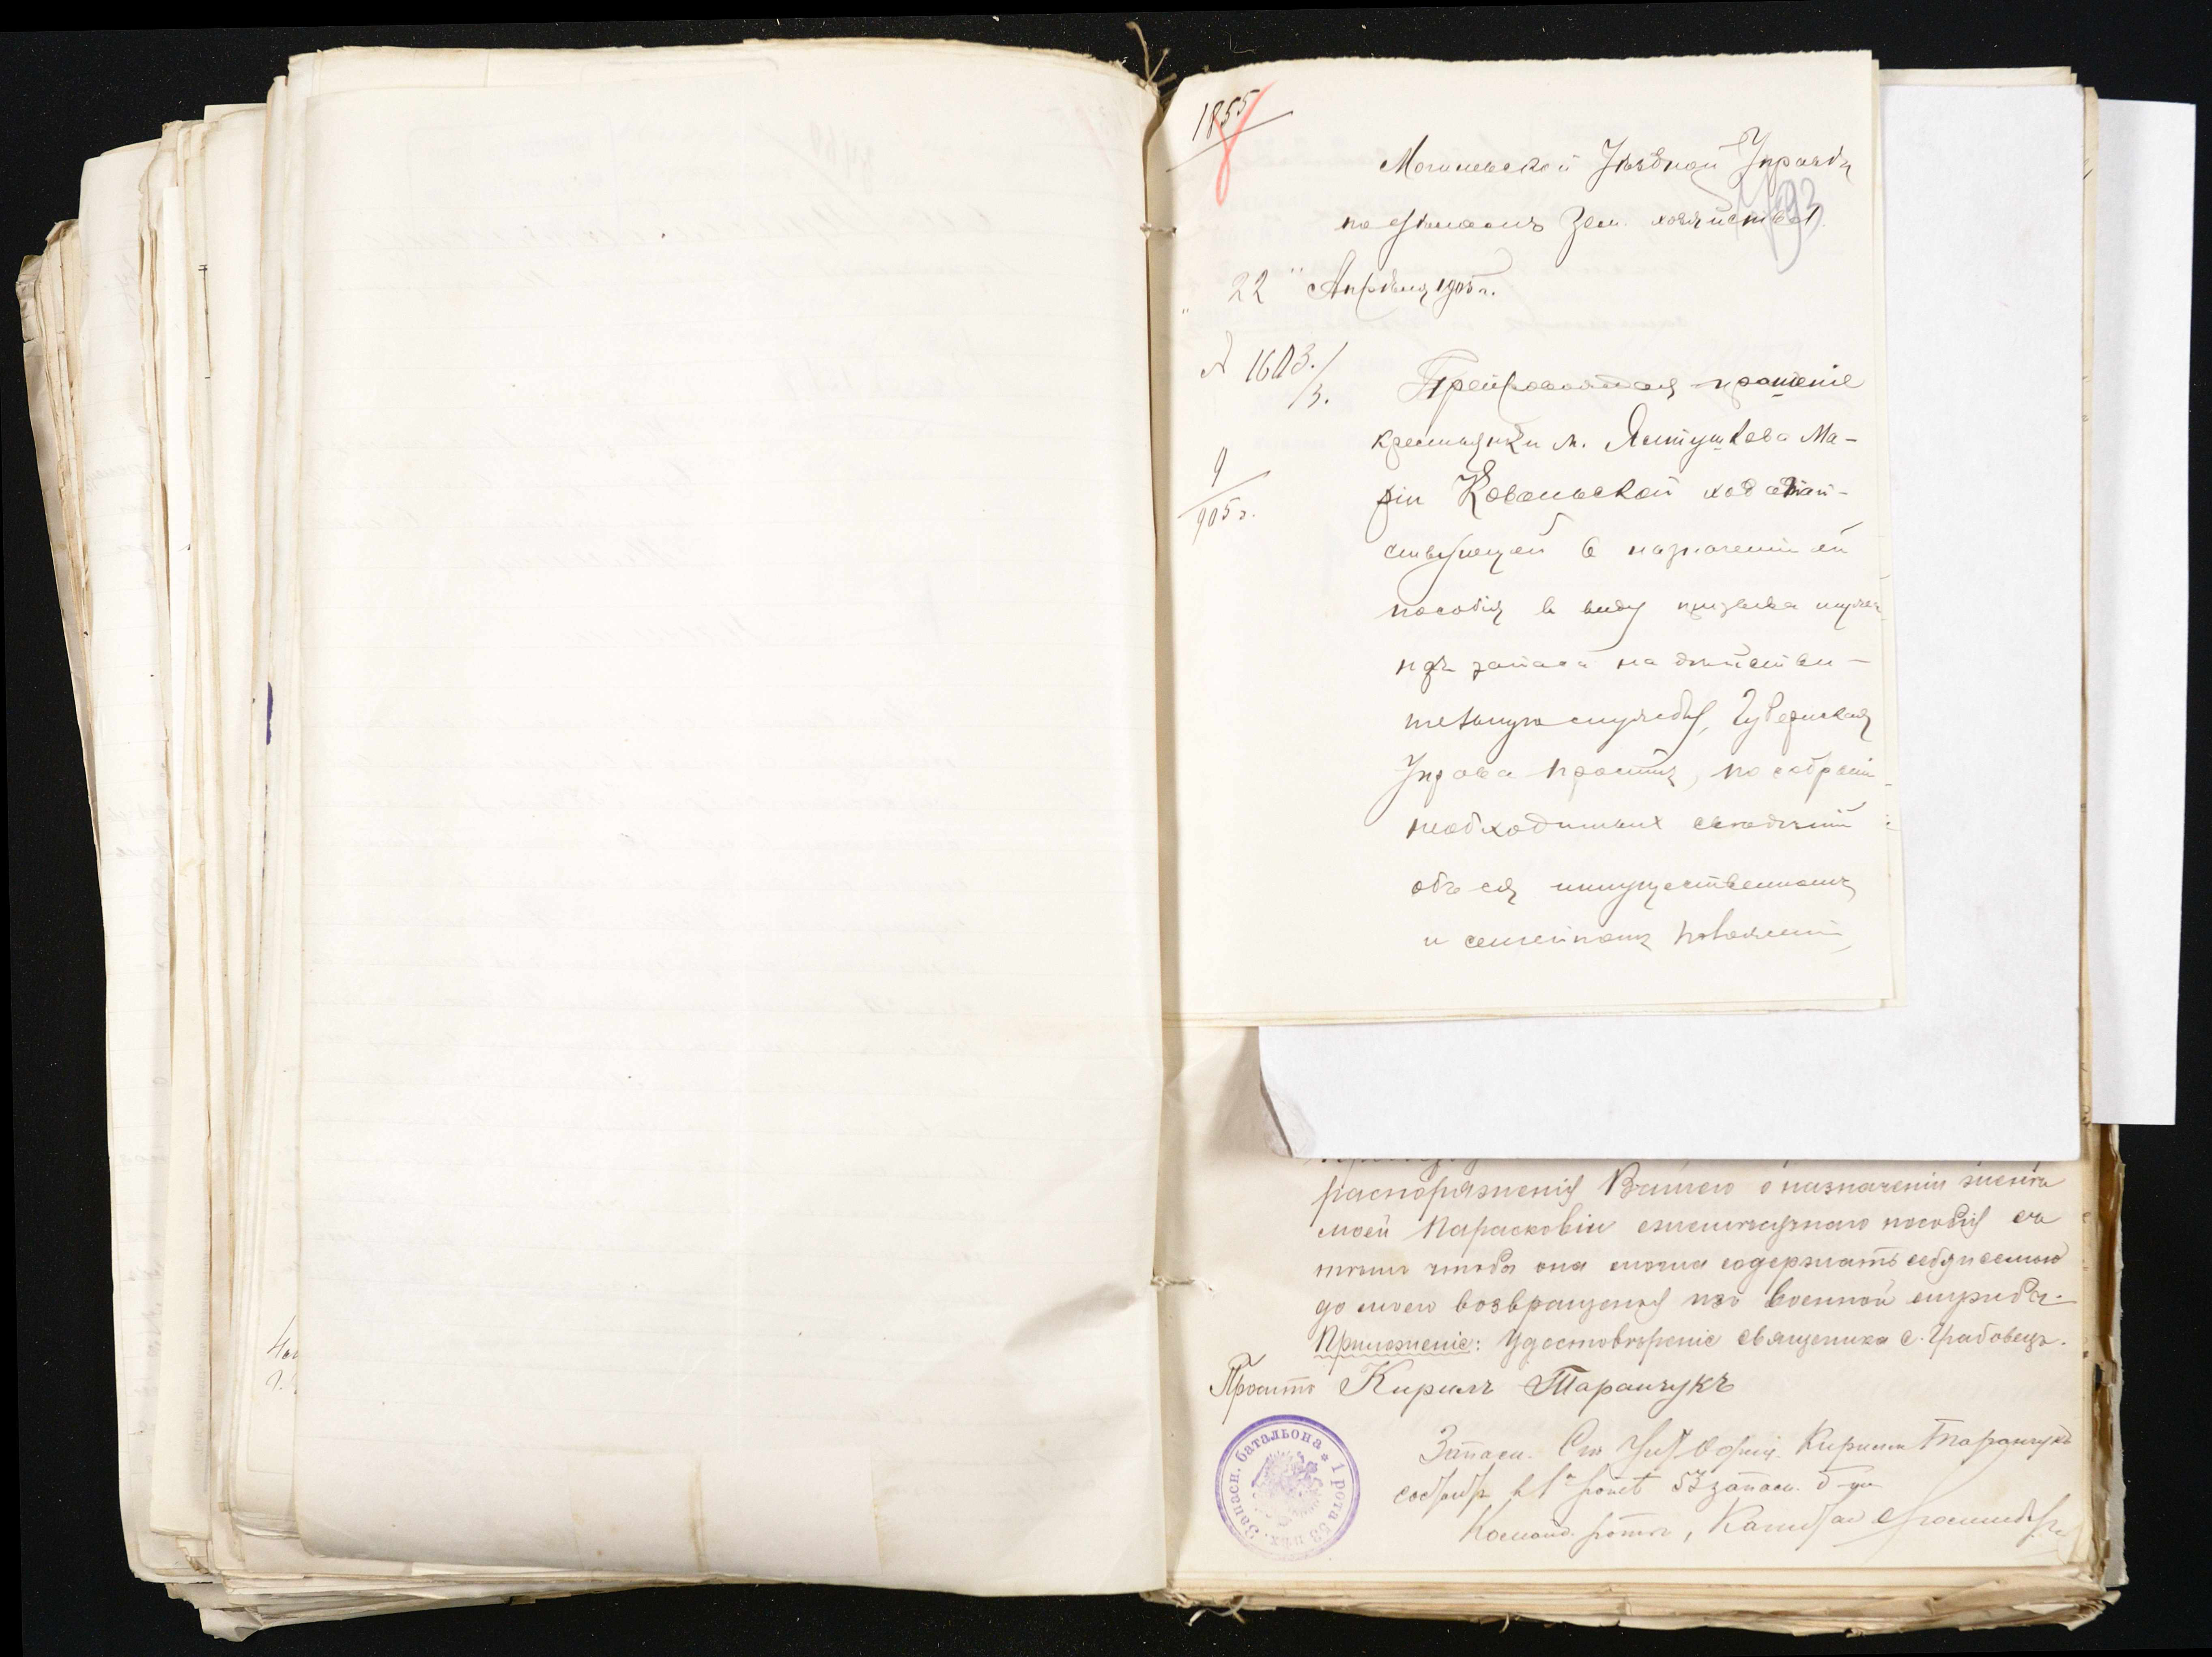 1855
Могилевской Уѣздной Управѣ
93
по дѣламъ Зем. хозяйства
"22" Апрѣля 1905 г.
№ 1603./3.
Препровождая прошеніе
крестьянки м. Ялтушкова Ма-
9/905 г.
ріи Ковальской ходатай-
ствующей о назначеніи ей
пособія в виду призыва мужа
изъ запаса на дѣйстви-
тельную службу, Губернская
Управа проситъ, по собраніи
необходимых свѣдѣній
объ ея имущественномъ
и семейномъ положеніи,
распоряженія Вашего о назначеніи женѣ
моей Парасковіи ежемѣсячнаго пособія съ
тѣмъ чтобы она могла содержать себя и семью
до моего возвращенія изъ военной службы.
Приложеніе: Удостовѣреніе священика с. Грабовецъ.
Проситъ Кирилъ Таранчукъ
Запасн. батальона * 1 рота 53 пѣх.
Запасн. Ст. Унт. Офиц. Кирилл Таранчукъ
1й ротѣ 53 запасн. б-на
Команд. роты, Капитан